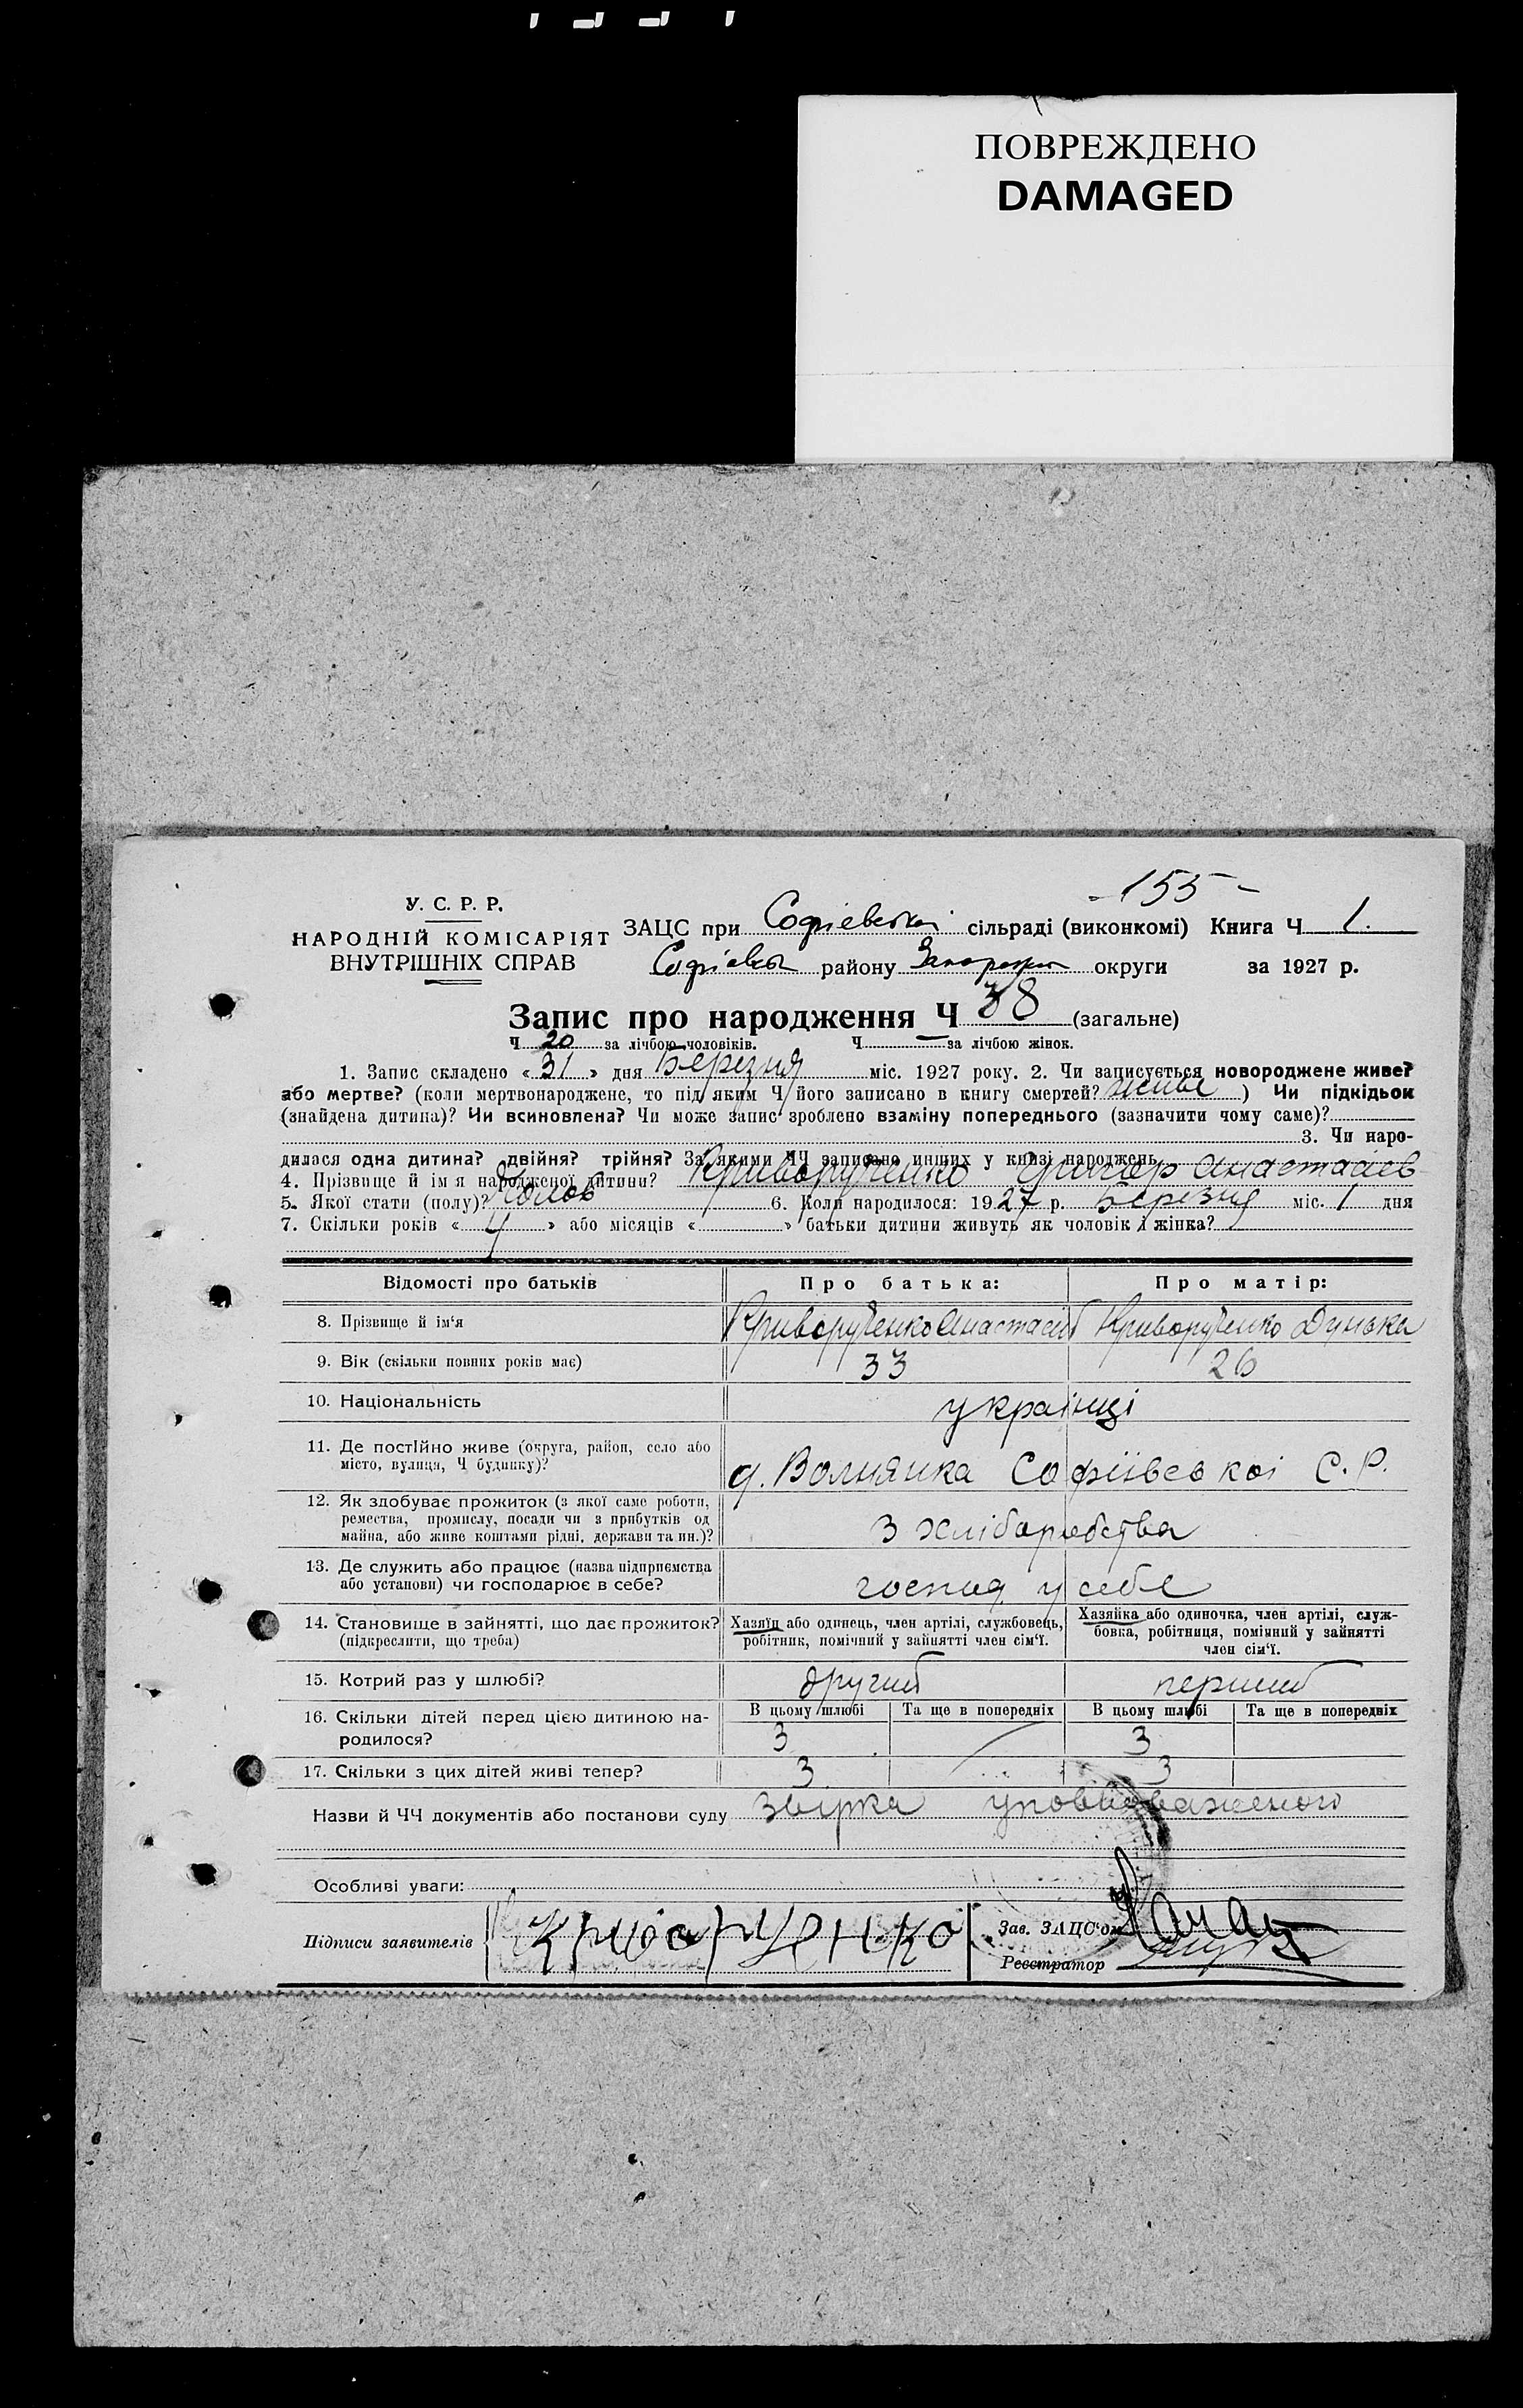 ПОВРЕЖДЕНО
DAMAGED
- 155 -
У. С. Р. Р.
НАРОДНІЙ КОМІСАРІЯТ
ВНУТРІШНІХ СПРАВ
ЗАЦС при Софіевській сільраді (виконкомі) Книга Ч 1.
Софіевсь району Запорожс округи за 1927 р.
Запис про народження Ч 38 (загальне)
Ч 20 за лічбою чоловіків. Ч — за лічбою жінок.
1. Запис складено « 31 » дня Березня міс. 1927 року. 2. Чи записується новороджене живе?
або мертве? (коли мертвонароджене, то під яким Ч його записано в книгу смертей? живе ) Чи підкідьок
(знайдена дитина)? Чи всиновлена? Чи може запис зроблено взаміну попереднього (зазначити чому саме)?
3. Чи наро-
дилася одна дитина? двійня? трійня? За якими ЧЧ записано инших у книзі народжень
4. Прізвище й ім я народженої дитини? Криворученко Григор Анастасіев
5. Якої стати (полу)? Чолов 6. Коли народилося: 1927 р. Березня міс. 1 дня
7. Скільки років « 4 » або місяців « » батьки дитини живуть як чоловік і жінка?
Відомості про батьків Про батька: Про матір:
8. Прізвище й ім‘я Криворученко Анастасій Криворученко Дунька
9. Вік (скільки повних років має) 33 26
10. Національність українці
11. Де постійно живе (округа, район, село або
місто, вулиця, Ч будинку)? д. Волнянка Софіївсь кої С. Р.
12. Як здобуває прожиток (з якої саме роботи,
ремества, промислу, посади чи з прибутків од
майна, або живе коштами рідні, держави та ин.)? З хліборобства
13. Де служить або працює (назва підприємства
або установи) чи господарює в себе? господ у себе
14. Становище в зайнятті, що дає прожиток?
(підкреслити, що треба)
Хазяїн або одинець, член артілі, службовець,
робітник, помічний у зайнятті член сім‘ї.
Хазяйка або одиночка, член артілі, служ-
бовка, робітниця, помічний у зайнятті
член сім‘ї.
15. Котрий раз у шлюбі? другий перший
16. Скільки дітей перед цією дитиною на-
родилося?
В цьому шлюбі Та ще в попередніх В цьому шлюбі Та ще в попередніх
3 3
17. Скільки з цих дітей живі тепер? 3 3
Назви й ЧЧ документів або постанови суду уповноваженого
Особливі уваги:
Підписи заявителів
Зав. ЗАЦС‘ом
Реєстратор